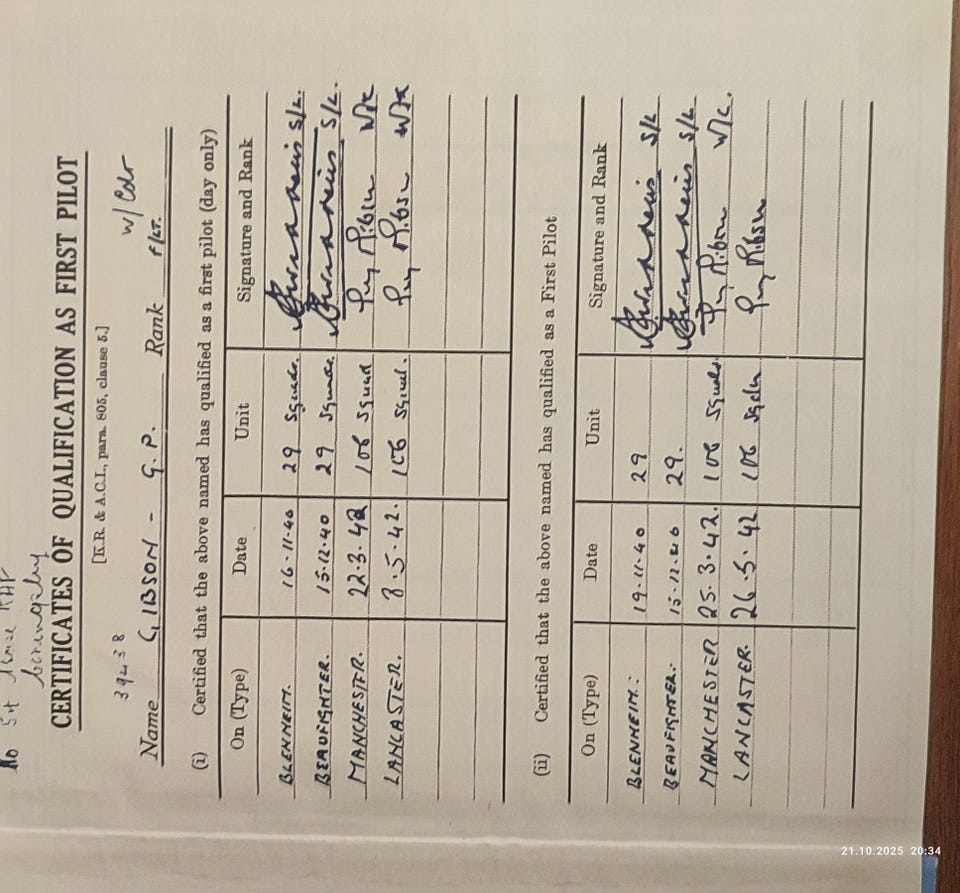 No 54 Base RAF
Coningsby
CERTIFICATES OF QUALIFICATION AS FIRST PILOT
[K.R. & A.C.I., para. 805, clause 5.]
39438 W/Cdr
Name GIBSON - G.P. Rank F/LT.
(i) Certified that the above named has qualified as a first pilot (day only)
On (Type) Date Unit Signature and Rank
BLENHEIM. 16-11-40 29 Squadr. S/L.
BEAUFIGHTER. 15-12-40 29 Squadr. S/L.
MANCHESTER. 22.3.42 106 Squad Guy Gibson W/C
LANCASTER. 8.5.42. 106 Squd. Guy Gibson W/C
(ii) Certified that the above named has qualified as a First Pilot
On (Type) Date Unit Signature and Rank
BLENHEIM: 19-11-40 29 S/L
BEAUFIGHTER: 15-12-40 29. S/L
MANCHESTER 25.3.42. 106 Squdr. Guy Gibson W/C.
LANCASTER. 26.5.42 106 Sqdn Guy Gibson
21.10.2025 20:34